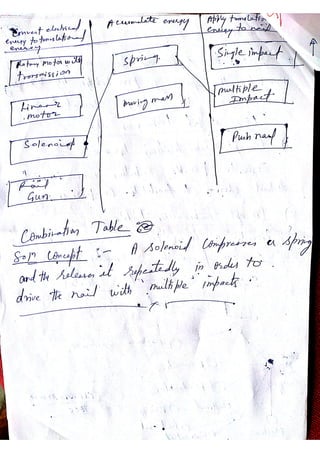 Convert electrical
energy to translational
energy
Accumulate energy
Apply translation
energy to nail
Rotary motor with
transmission
Spring
Single impact
Linear
motor
Moving mass
multiple
Impact
Solenoid
Push nail
Rail
Gun
Combination Table
Solⁿ Concept :- A solenoid compresses a spring
and the releases it repeatedly in order to
drive the nail with multiple impacts.